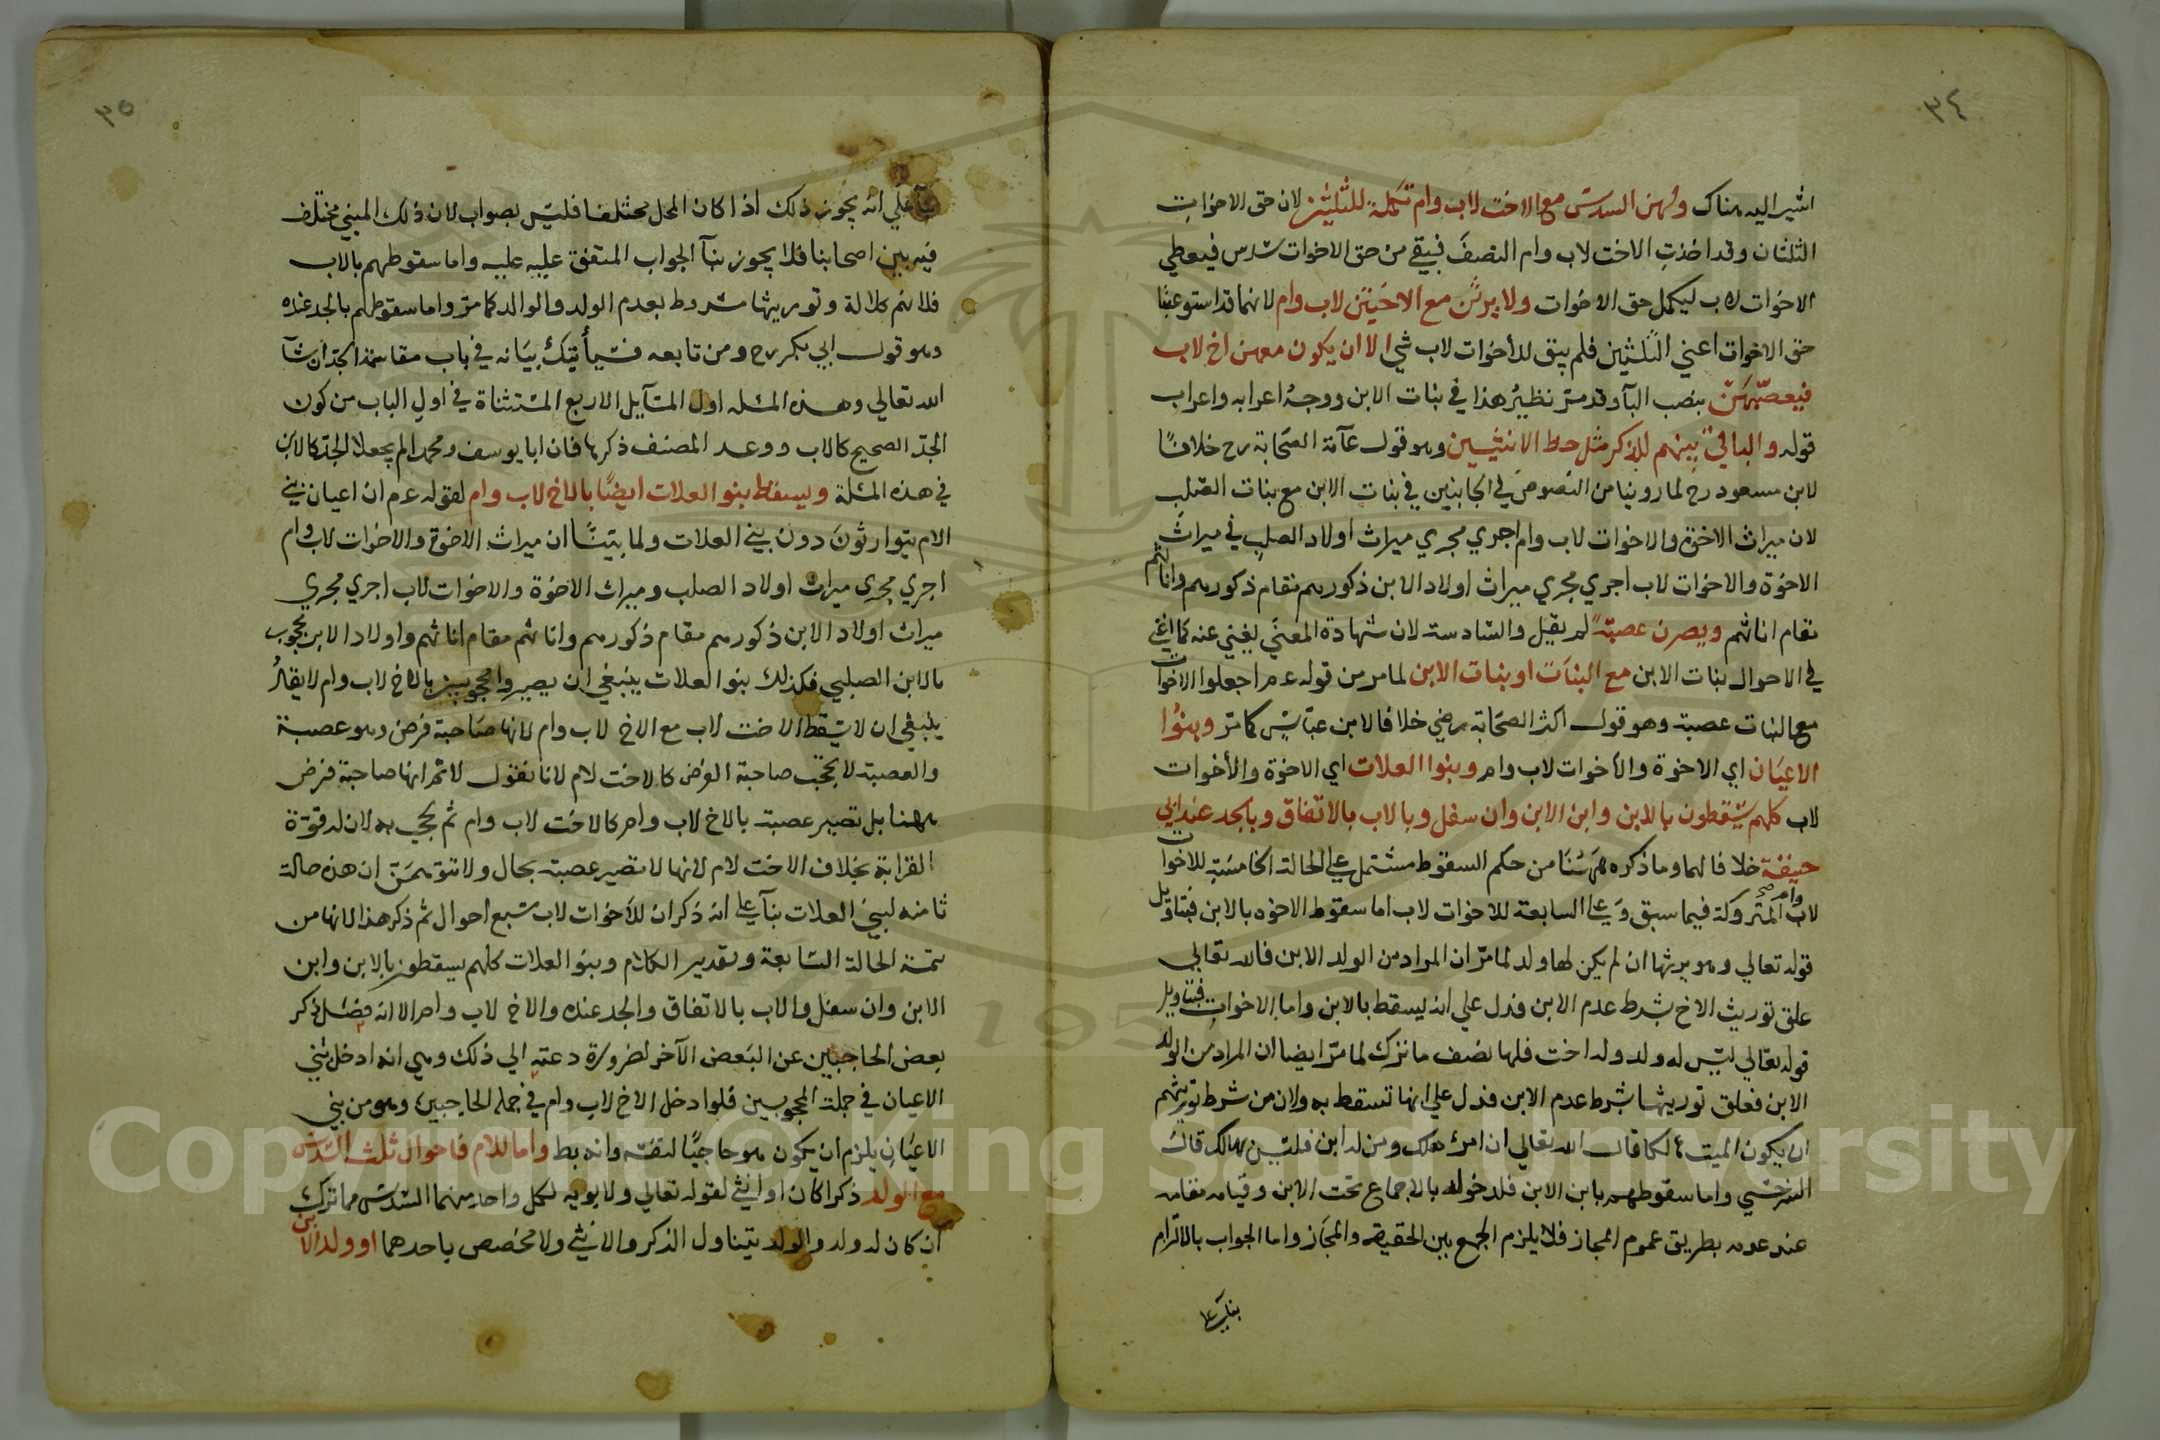 ٣٤
اشير اليه هناك ولهن السدس مع الاخت لاب وام تكملة للثلثين لان حق الاخوات
الثلثان وقد اخذت الاخت لاب وام النصف فبقي من حق الاخوات سدس فيعطي
الاخوات لاب ليكمل حق الاخوات ولا يرثن مع الاختين لاب وام لانهما قد استوعبتا
حق الاخوات اعني الثلثين فلم يبق للأخوات لاب شي الا ان يكون معهن اخ لاب
فيعصبهن بنصب البآ وقد مر نظير هذا في بنات الابن ووجه اعرابه واعراب
قوله والباقي بينهم للذكر مثل حظ الانثيين وهو قول عآمة الصحابة رح خلافا
لابن مسعود رح لما روينا من النصوص في الجانبين في بنات الابن مع بنات الصلب
لان ميراث الاخوة والاخوات لاب وام اجري مجري ميراث اولاد الصلب في ميراث
الاخوة والاخوات لاب اجري مجري ميراث اولاد الابن ذكورهم مقام ذكورهم واناثهم
مقام اناثهم ويصرن عصبة لم يقل والسادسة لان شهادة المعني يغني عنه كما اغني
في الاحوال بنات الابن مع البنات او بنات الابن لما مر من قوله عم اجعلوا الاخوات
مع البنات عصبة وهو قول اكثر الصحابة رضي خلافا لابن عباس كما مر وبنوا
الاعيان اي الاخوة والأخوات لاب وام وبنوا العلات اي الاخوة والأخوات
لاب كلهم يسقطون بالابن وابن الابن وان سفل وبالاب بالاتفاق وبالجد عند ابي
حنيفة خلافا لهما وما ذكره ههنا من حكم السقوط مشتمل علي الحالة الخامسة للاخوات
لاب وام المتروكة فيما سبق وعلي السابعة للاخوات لاب اما سقوط الاخوه بالابن فبتاويل
قوله تعالي وهو يرثها ان لم يكن لها ولد لما مر ان المراد من الولد الابن فالله تعالي
علق توريث الاخ بشرط عدم الابن فدل علي انه يسقط بالابن واما الاخوات فبتاويل
قوله تعالي ليس له ولد وله اخت فلها نصف ما ترك لما مر ايضا ان المراد من الولد
الابن فعلق توريثها بشرط عدم الابن فدل علي انها تسقط به ولان من شرط توريثهم
ان يكون الميت كما قال الله تعالي ان امرؤ هلك ومن له ابن فليس بهالك قال
السرخسي واما سقوطهم بابن الابن فلدخوله بالاجماع تحت الابن وقيامه مقامه
عند عدمه بطريق عموم المجاز فلا يلزم الجمع بين الحقيقه والمجاز واما الجواب بالالتزام
بناء علي
٣٥
بنآ علي انه يجوز ذلك اذا كان المحل مختلفا فليس بصواب لان ذلك المبني مختلف
فيه بين اصحابنا فلا يجوز بنآ الجواب المتفق عليه عليه واما سقوطهم بالاب
فلانهم كلالة وتوريثها مشروط بعدم الولد والوالد كما مر واما سقوطهم بالجد عنده
وهو قول ابي بكر رح ومن تابعه فسيأتيك بيانه في باب مقاسمة الجد ان شآ
الله تعالي وهذه المسله اول المسآيل الاربع المستثناة في اول الباب من كون
الجد الصحيح كالاب ووعد المصنف ذكرها فان ابا يوسف ومحمدا لم يجعلا الجد كالاب
في هذه المسلة ويسقط بنو العلات ايضا بالاخ لاب وام لقوله عم ان اعيان بني
الام يتوارثون دون بني العلات ولما بينا ان ميراث الاخوة والاخوات لاب وام
اجري مجري ميراث اولاد الصلب وميراث الاخوة والاخوات لاب اجري مجري
ميراث اولاد الابن ذكورهم مقام ذكورهم واناثهم مقام اناثهم واولاد الابن محجوب
بالابن الصلبي فكذلك بنو العلات ينبغي ان يصيروا محجوبين بالاخ لاب وام لا يقال
ينبغي ان لا يسقط الاخت لاب مع الاخ لاب وام لانها صاحبة فرض وهو عصبة
والعصبة لا تحجب صاحبة الفرض كالاخت لام لانا نقول لا ثم انها صاحبة فرض
ههنا بل تصير عصبة بالاخ لاب وام كالاخت لاب وام ثم تحجب به لان له قوة
القرابة بخلاف الاخت لام لانها لا تصير عصبة بحال ولا تتوهمن ان هذه حالة
ثامنه لبني العلات بنآ علي انه ذكر ان للأخوات لاب سبع احوال ثم ذكر هذا لانها من
تتمة الحالة السابعة وتقدير الكلام وبنو العلات كلهم يسقطون بالابن وابن
الابن وان سفل والاب بالاتفاق والجد عنده والاخ لاب وام الا انه فصل ذكر
بعض الحاجبين عن البعض الآخر لضرورة دعته الي ذلك وهي انه ادخل بني
الاعيان في جملة المحجوبين فلو ادخل الاخ لاب وام في جمله الحاجبين وهو من بني
الاعيان يلزم ان يكون هو حاجبا لنفسه وانه بط واما للام فاحوال ثلث السدس
مع الولد ذكرا كان او انثي لقوله تعالي ولابويه لكل واحد منهما السدس مما ترك
ان كان له ولد والولد يتناول الذكر والانثي ولا مخصص باحدهما او ولد الابن
Copyright © King Saud University
195